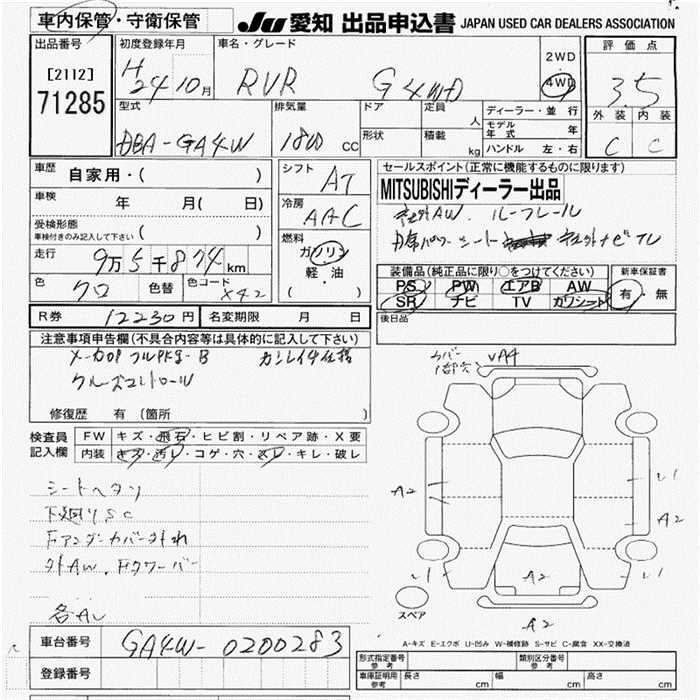 車内保管・守衛保管
JU 愛知 出品申込書 JAPAN USED CAR DEALERS ASSOCIATION
出品番号
[2112]
71285
初度登録年月
H
24 10月
車名・グレード
RVR G4WD
2WD
4WD
評価点
3.5
外装 内装
C C
型式
DBA-GA4W
排気量
1800 cc
ドア
形状
定員 人
積載 kg
ディーラー・並行
モデル年式 年
ハンドル 左・右
車歴
自家用・( )
車検
年 月( 日)
受検形態
車検付きのみ記入して下さい ( )
走行
9万5千874km
色
クロ
色替
色コード
X42
シフト
AT
冷房
AAC
燃料
ガソリン
軽・油
( )
セールスポイント(正常に機能するものに限ります)
MITSUBISHIディーラー出品
社外AW. ルーフレール
装備品(純正品に限り○をつけてください)
PS PW エアB AW
SR ナビ TV カワシート
新車保証書
有・無
後日品
R券 12230円
名変期限 月 日
注意事項申告欄(不具合内容等は具体的に記入して下さい)
メーカOP フルPKg-B
クルーズコントロール
修復歴 有(箇所 )
検査員記入欄
FW キズ・飛石・ヒビ割・リペア跡・X要
内装 キズ・汚レ・コゲ・穴・スレ・キレ・破レ
シートヘタリ
下廻りSC
Fアンダーカバー外れ
外AW.Fタワーバー
各AU
カバー
1部欠
A4
A2
U1
A2
U1
A2
U1
A2
スペア
車台番号
GA4W-0200283
登録番号
A-キズ E-エクボ U-凹み W-補修跡 S-サビ C-腐食 XX-交換済
形式指定番号
参考
類別区分番号
参考
車庫証明用
参考
長さ cm
幅 cm
高さ cm